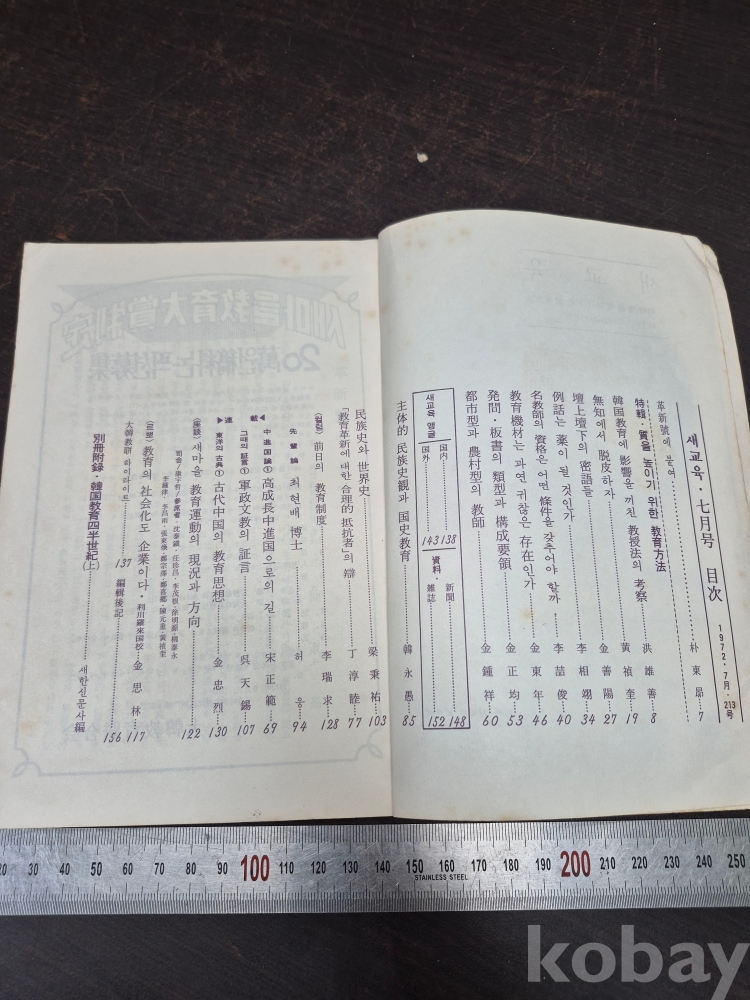 새교육·七月号 目次
1972·7月·213号
革新號에 붙여 朴東昂 7
特輯·質을 높이기 위한 教育方法
韓国教育에 影響을 끼친 教授法의 考察 洪雄善 8
無知에서 脱皮하자 黄禎奎 19
壇上壇下의 密語들 金善陽 27
例話는 薬이 될 것인가 李相翊 34
名教師의 資格은 어떤 條件을 갖추어야 할까 李喆俊 40
教育機材는 과연 귀찮은 存在인가 金東年 46
発問·板書의 類型과 構成要領 金正均 53
都市型과 農村型의 教師 金鍾祥 60
새교육 앵글
国内 138
国外 143
資料·
新聞 148
雑誌 152
主体的 民族史観과 国史教育 韓永愚 85
民族史와 世界史 梁秉祐 103
「教育革新에 대한 合理的 抵抗者」의 辯 丁淳睦 77
〈컬럼〉 前日의 教育制度 李瑞求 128
先輩論 최현배 博士 허웅 94
◀連載▶
中進国論① 高成長中進国으로의 길 宋正範 69
그때의 証言① 軍政文教의 証言 呉天錫 107
東洋의 古典① 古代中国의 教育思想 金忠烈 130
〈座談〉 새마을 教育運動의 現況과 方向 122
〈르뽀〉 教育의 社会化도 企業이다·利川羅来国校 金思林 117
大韓教聯 하이라이트 137
編輯後記 156
別冊附録·韓国教育四半世紀(上) 새한신문사編
새마을教育大賞制定
20萬원稿料논픽션募集
20 30 40 50 60 70 80 90 100 110 120 130 140 150 160 170 180 190 200 210 220 230 240 250
STAINLESS STEEL
kobay